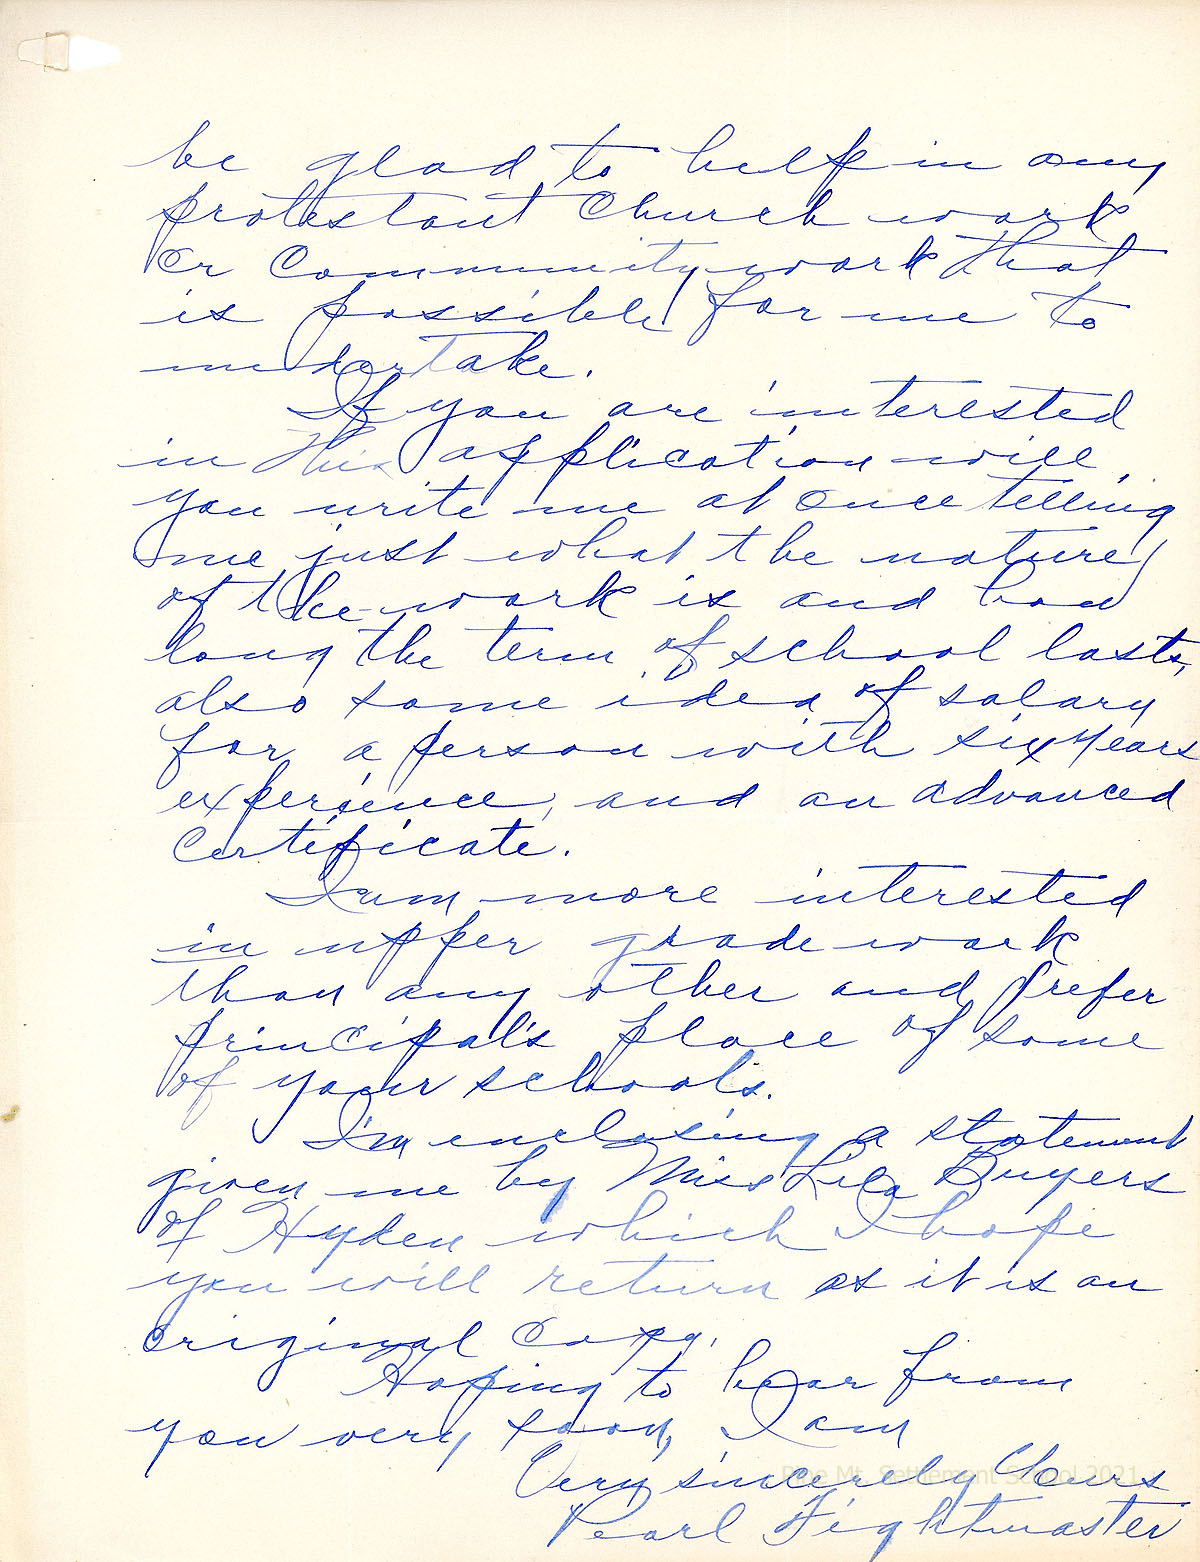 be glad to help in any
protestant Church work
or Community work that
is possible for me to
undertake.
If you are interested
in this application will
you write me at once telling
me just what the nature
of the work is and how
long the term of school lasts,
also some idea of salary
for a person with six years
experience, and an advanced
certificate.
I am more interested
in upper grade work
than any other and prefer
principal's place of some
of your schools.
I'm enclosing a statement
given me by Miss Lila Buyers
of Hyden which I hope
you will return as it is an
original copy.
Hoping to hear from
you very soon, I am
Very sincerely Yours
Pearl Fightmaster
Pine Mt. Settlement School 2021